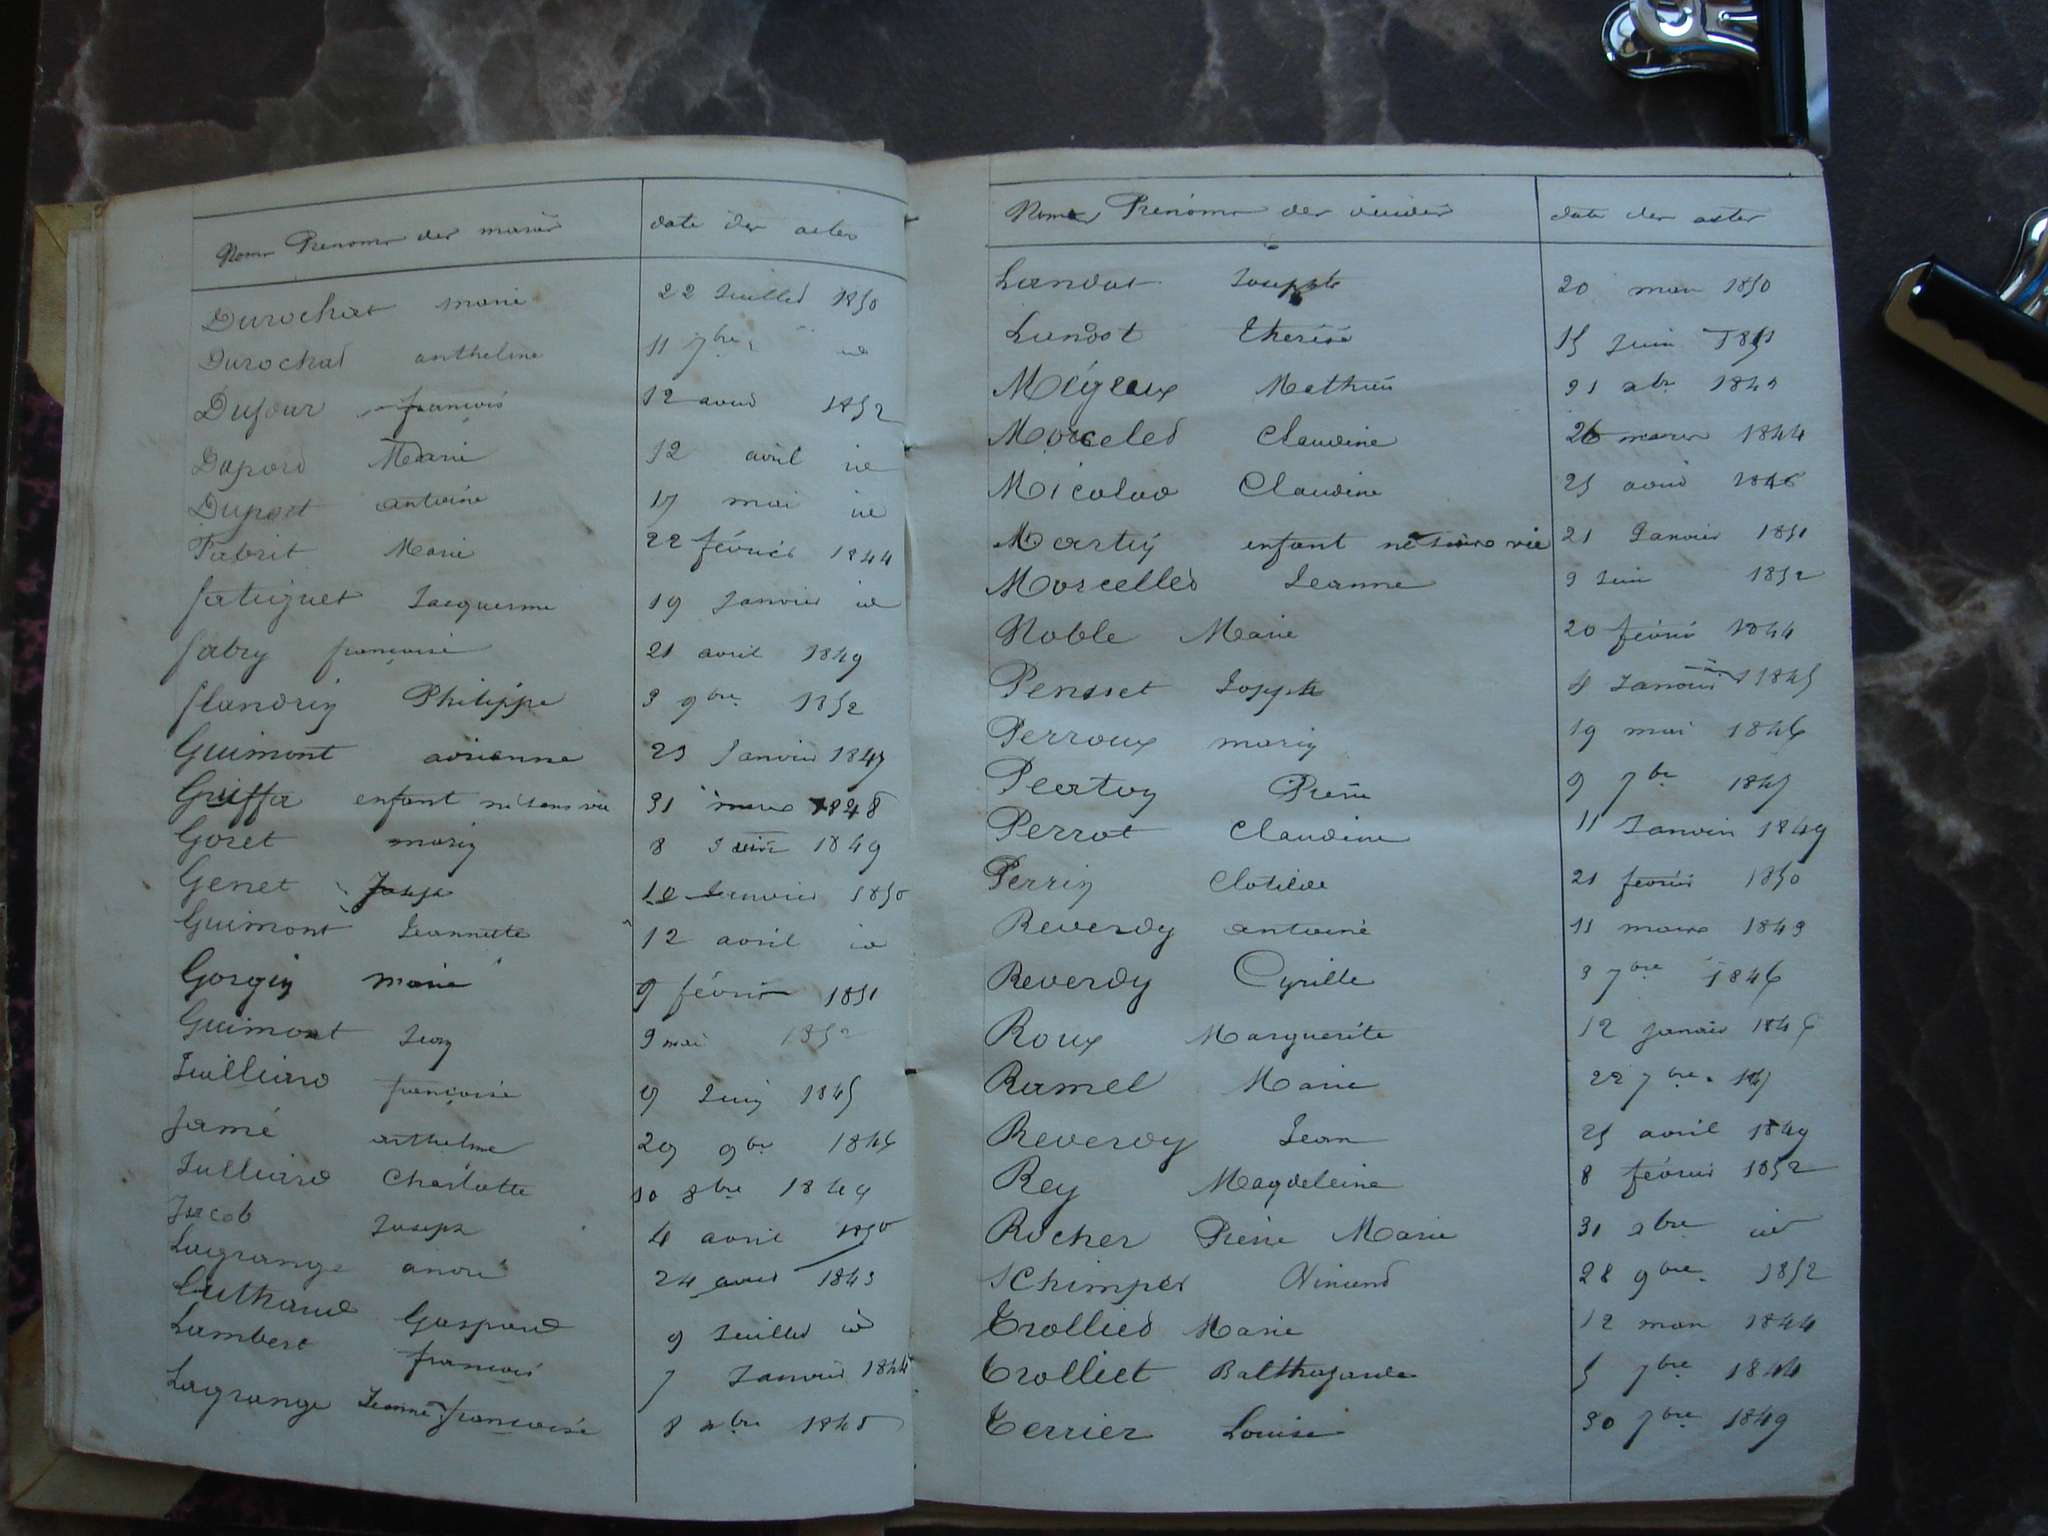 Noms Prenoms des
date des actes
Durochat marie 22 Juillet 1850
Durochat anthelme 11 7bre id
Dufour françois 12 1852
Duport Marie 12 avril id
Duport antoine 17 mai id
Fabrit Marie 22 février 1844
fatiguet Jacqueline 19 Janvier id
fabry françoise 21 avril 1849
flandrin Philippe 3 9bre 1852
Guimont adrienne 23 Janvier 1845
Griffa enfant né sans vie 31 mars 1848
Goret marin 8 1849
Genet Joseph 10 Janvier 1850
Guimont Jeannette 12 avril id
Gorgin marie 9 février 1851
Guimont Jean 9 mai 1852
Juilliard françoise 9 Juin 1845
Jamé anthelme 29 9bre 1846
Julliard Charlotte 10 8bre 1849
Jacob Joseph 4 avril 1850
Lagrange andré 24 1843
Luthaud Gaspard 9 Juillet id
Lambert françois 7 Janvier 1844
Lagrange Jeanne françoise 8 xbre 1845
Noms Prénoms des
date des actes
Landot Joseph 20 mars 1850
Landot Therèse 15 Juin 1851
Mégroux Mathieu 31 xbre 1843
Morceled Claudine 26 mars 1844
Micolod Claudine 25 1846
Martin enfant né sans vie 21 Janvier 1851
Morcelled Jeanne 9 Juin 1852
Noble Marie 20 févrié 1844
Pensset Joseph Janvier 1845
Perroux marin 19 mai 1846
Peartuy Pierre 9 7bre 1845
Perrot Claudine 11 Janvier 1849
Perrin Clotilde 21 février 1850
Reverdy antoine 11 mars 1843
Reverdy Cyrille 3 7bre 1846
Roux Marguerite 12 janvier 1846
Ramel Marie 22 7bre
Reverdy Jean 25 avril 1849
Rey Magdeleine 8 février 1852
Rocher Pierre Marie 31 xbre id
Schimper 28 9bre 1852
Trollied Marie 12 mars 1844
Trolliet Balthasarde 5 7bre 1844
Terrier Louise 30 7bre 1849